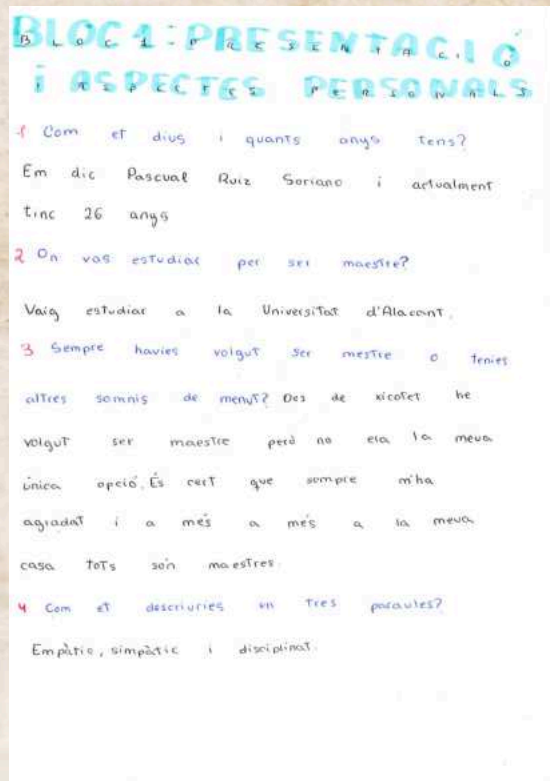 BLOC 1: PRESENTACIÓ
i ASPECTES PERSONALS
1 Com et dius i quants anys tens?
Em dic Pascual Ruiz Soriano i actualment
tinc 26 anys
2 On vas estudiar per ser maestre?
Vaig estudiar a la Universitat d'Alacant.
3 Sempre havies volgut ser mestre o tenies
altres somnis de menut? Des de xicotet he
volgut ser maestre però no era la meva
única opció. És cert que sempre m'ha
agradat i a més a més a la meva
casa tots són maestres.
4 Com et descriuries en tres paraules?
Empàtic, simpàtic i disciplinat.